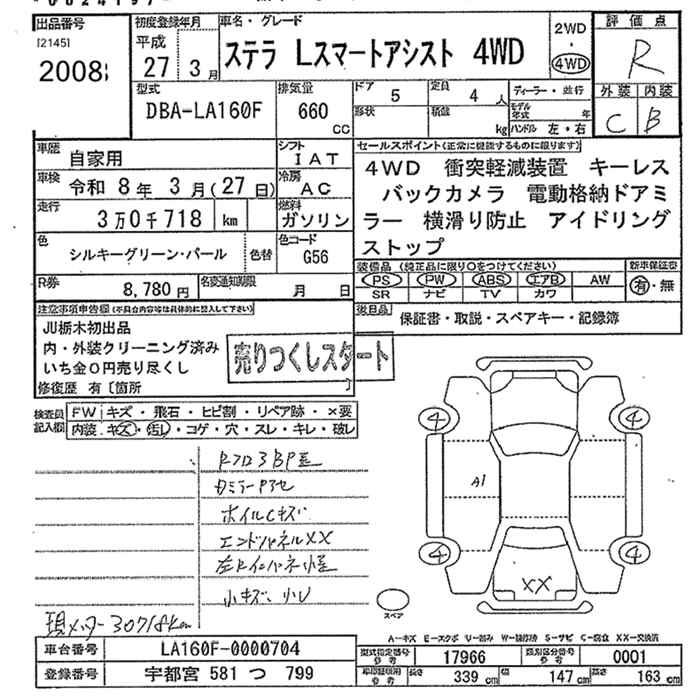 出品番号
[2145]
2008
初度登録年月
平成
27 3月
車名・グレード
ステラ Lスマートアシスト 4WD
2WD
・
4WD
評価点
R
外装 内装
C B
型式
DBA-LA160F
排気量
660 CC
ドア 5
定員 4 人
形状
積載 kg
ディーラー・並行
モデル年式 年
ハンドル 左・右
車歴 自家用
シフト IAT
車検 令和 8年 3月(27日)
冷房 AC
走行 3万0千718 km
燃料 ガソリン
色 シルキーグリーン・パール 色替
色コード G56
R券 8,780円
名変通知期限 月 日
セールスポイント(正常に機能するものに限ります)
4WD 衝突軽減装置 キーレス
バックカメラ 電動格納ドアミ
ラー 横滑り防止 アイドリング
ストップ
装備品 (純正品に限り○をつけてください) 新車保証書
PS PW ABS エアB AW 有・無
SR ナビ TV カワ
後日品 保証書・取説・スペアキー・記録簿
注意事項申告欄(不具合内容等は具体的に記入して下さい)
JU栃木初出品
内・外装クリーニング済み
いち金0円売り尽くし
売りつくしスタート
修復歴 有〔箇所 〕
検査員記入欄
FW キズ・飛石・ヒビ割・リペア跡・×要
内装 キズ・汚レ・コゲ・穴・スレ・キレ・破レ
ホイルCキズ
エンドパネルXX
小キズ、小U
現メーター30718km
4 4
A1
4 4
XX
スペア
A-キズ E-エクボ U-凹み W-補修跡 S-サビ C-腐食 XX-交換済
車台番号 LA160F-0000704
型式指定番号 参考 17966
類別区分番号 参考 0001
登録番号 宇都宮 581 つ 799
車印証採寸 参考 長さ 339 cm 幅 147 cm 高さ 163 cm